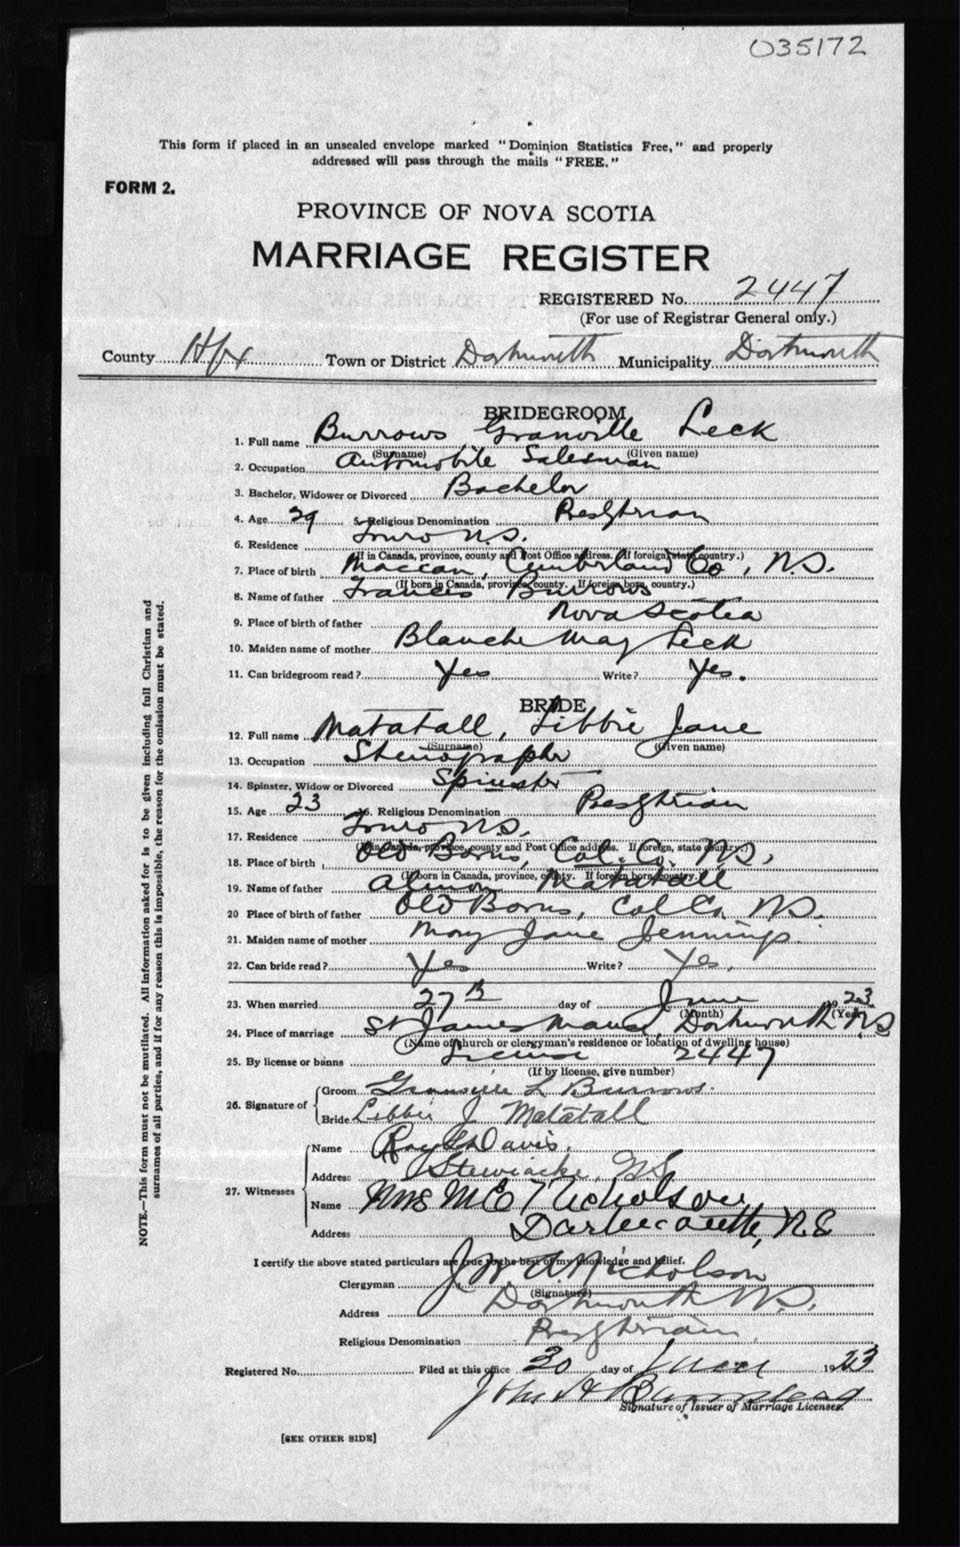 035172
This form if placed in an unsealed envelope marked "Dominion Statistics Free," and properly
addressed will pass through the mails "FREE."
FORM 2.
PROVINCE OF NOVA SCOTIA
MARRIAGE REGISTER
REGISTERED No. 2447
(For use of Registrar General only.)
County Hfx Town or District Dartmouth Municipality Dartmouth
BRIDEGROOM
1. Full name Burrows Granville Leck
(Surname) (Given name)
2. Occupation Automobile Salesman
3. Bachelor, Widower or Divorced Bachelor
4. Age 29 5. Religious Denomination Presbyterian
6. Residence Truro N.S.
(If in Canada, province, county and Post Office address. If foreign, state country.)
7. Place of birth Maccan, Cumberland Co, N.S.
(If born in Canada, province, county. If foreign born, country.)
8. Name of father Francis Burrows
9. Place of birth of father Nova Scotia
10. Maiden name of mother Blanche May Leck
11. Can bridegroom read? Yes Write? Yes.
BRIDE
12. Full name Matatall, Libbie Jane
(Surname) (Given name)
13. Occupation Stenographer
14. Spinster, Widow or Divorced Spinster
15. Age 23 16. Religious Denomination Presbyterian
17. Residence Truro N.S.
(In Canada, province, county and Post Office address. If foreign, state country.)
18. Place of birth Old Barns, Col. Co. N.S.
(If born in Canada, province, county. If foreign born, country.)
19. Name of father Almon Matatall
20 Place of birth of father Old Barns, Col Co. N.S.
21. Maiden name of mother Mary Jane Jennings
22. Can bride read? Yes Write? Yes.
23. When married 27th day of June 1923
(Month) (Year)
24. Place of marriage St James Manse, Dartmouth N.S
(Name of church or clergyman's residence or location of dwelling house)
25. By license or banns License 2447
(If by license, give number)
26. Signature of Groom Granville L Burrows.
Bride Libbie J Matatall
27. Witnesses Name Roy Davis
Address Stewiacke, N.S.
Name Mrs Nicholson
Address Dartmouth, N.S
I certify the above stated particulars are true to the best of my knowledge and belief.
Clergyman J W A Nicholson
(Signature)
Address Dartmouth N.S.
Religious Denomination Presbyterian
Registered No. Filed at this office 30 day of June 1923
John H
Signature of Issuer of Marriage Licenses.
[SEE OTHER SIDE]
NOTE.—This form must not be mutilated. All information asked for is to be given including full Christian and
surnames of all parties, and if for any reason this is impossible, the reason for the omission must be stated.